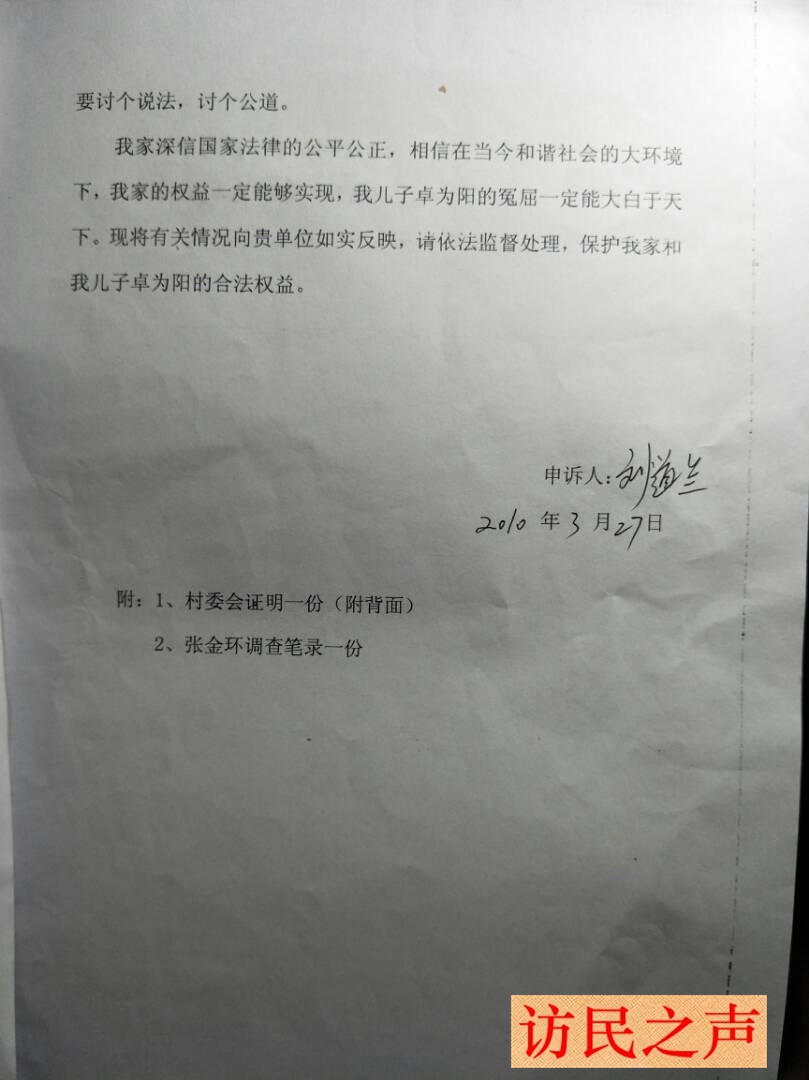 要讨个说法，讨个公道。
我家深信国家法律的公平公正，相信在当今和谐社会的大环境
下，我家的权益一定能够实现，我儿子卓为阳的冤屈一定能大白于天
下。现将有关情况向贵单位如实反映，请依法监督处理，保护我家和
我儿子卓为阳的合法权益。
申诉人：刘道兰
2010 年 3 月 27 日
附：1、村委会证明一份（附背面）
2、张金环调查笔录一份
访民之声